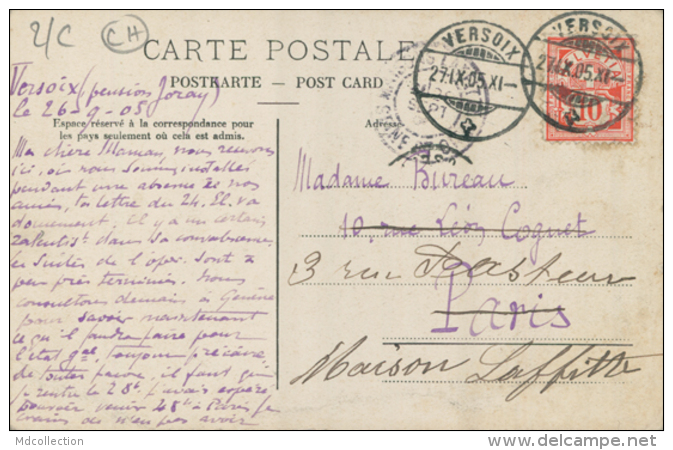 2/C
CH
CARTE POSTALE
POSTKARTE — POST CARD
Espace réservé à la correspondance pour
les pays seulement où cela est admis.
Adresse
VERSOIX
27.IX.05.XI—
VERSOIX
27.IX.05.XI—
10
Versoix (pension Joray)
le 26-9-05
Ma chère Maman, nous recevons
ici, où nous sommes installés
pendant une absence de nos
amis, ta lettre du 24. El. va
doucement, il y a un certain
dans sa convalescence,
les suites de l'opér. sont à
peu près terminées. Nous
consultons demain à Genève
pour savoir maintenant
ce qu'il faudra faire pour
l'état gal, toujours précaire,
de toutes façons, il faut que
je rentre le 28. J'avais espéré
pouvoir venir 48h à Paris, je
crains de n'en pas avoir
Madame Bureau
10, rue Léon Cogniet
3 rue Pasteur
Paris
Maison Laffitte
Mdcollection
www.delcampe.net